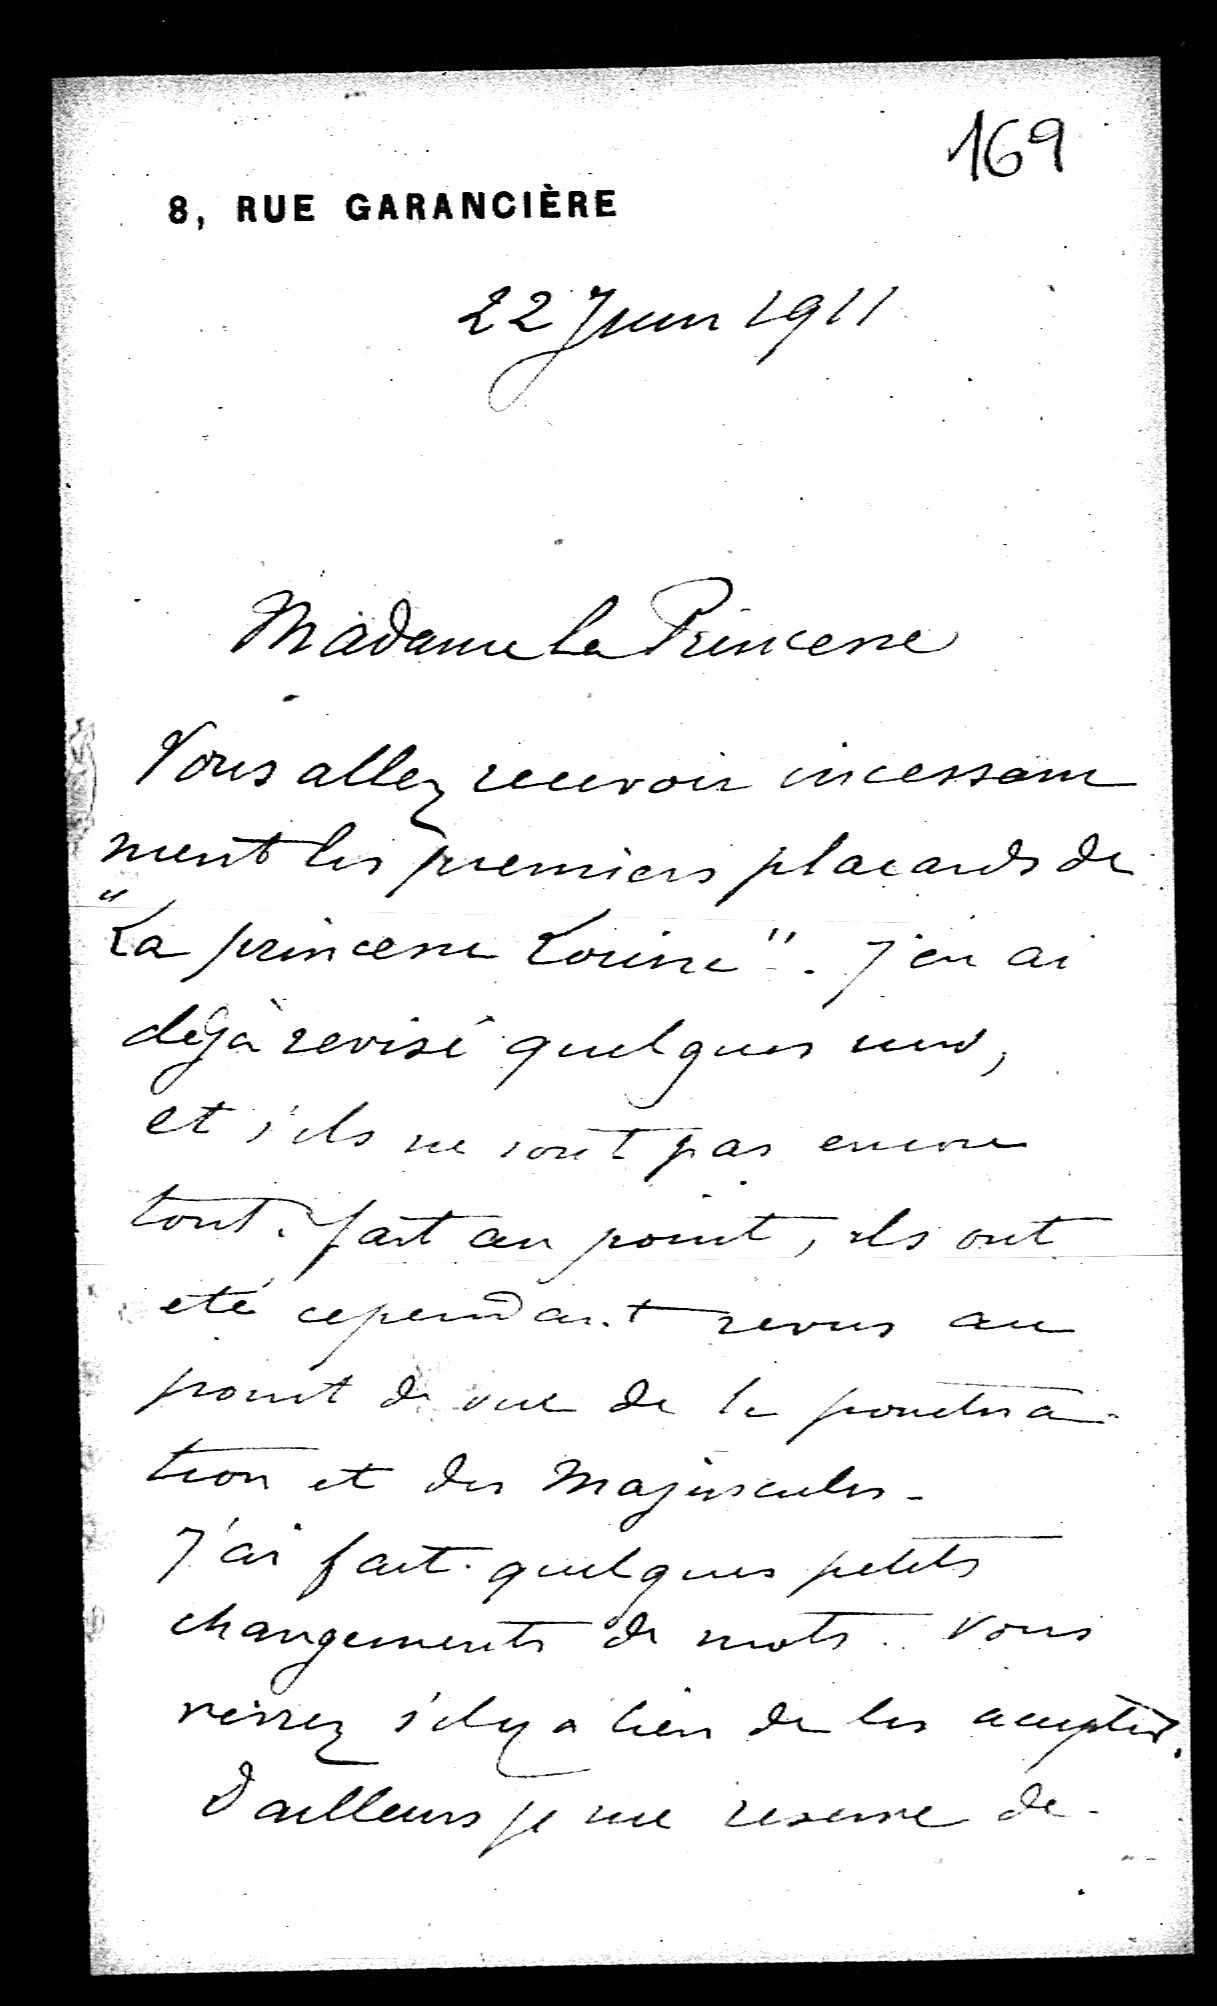 169
8, RUE GARANCIÈRE
22 Juin 1911
Madame la Princesse
Vous allez recevoir incessam
ment les premiers placards de
"La princesse Louise". J'en ai
déjà revisé quelques uns,
et s'ils ne sont pas encore
tout à fait au point, ils ont
été cependant revus au
point de vue de la ponctua-
tion et des Majuscules.
J'ai fait quelques petits
changements de mots. Vous
verrez s'il y a lieu de les accepter.
D'ailleurs je me reserve de